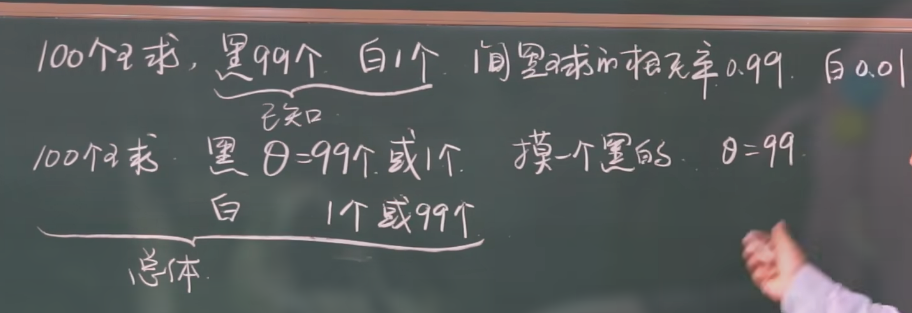 100个球, 黑99个 白1个 问黑球的概率0.99. 白0.01
已知
100个球. 黑 θ=99个.或1个. 摸一个黑的. θ=99.
白 1个或99个
总体.